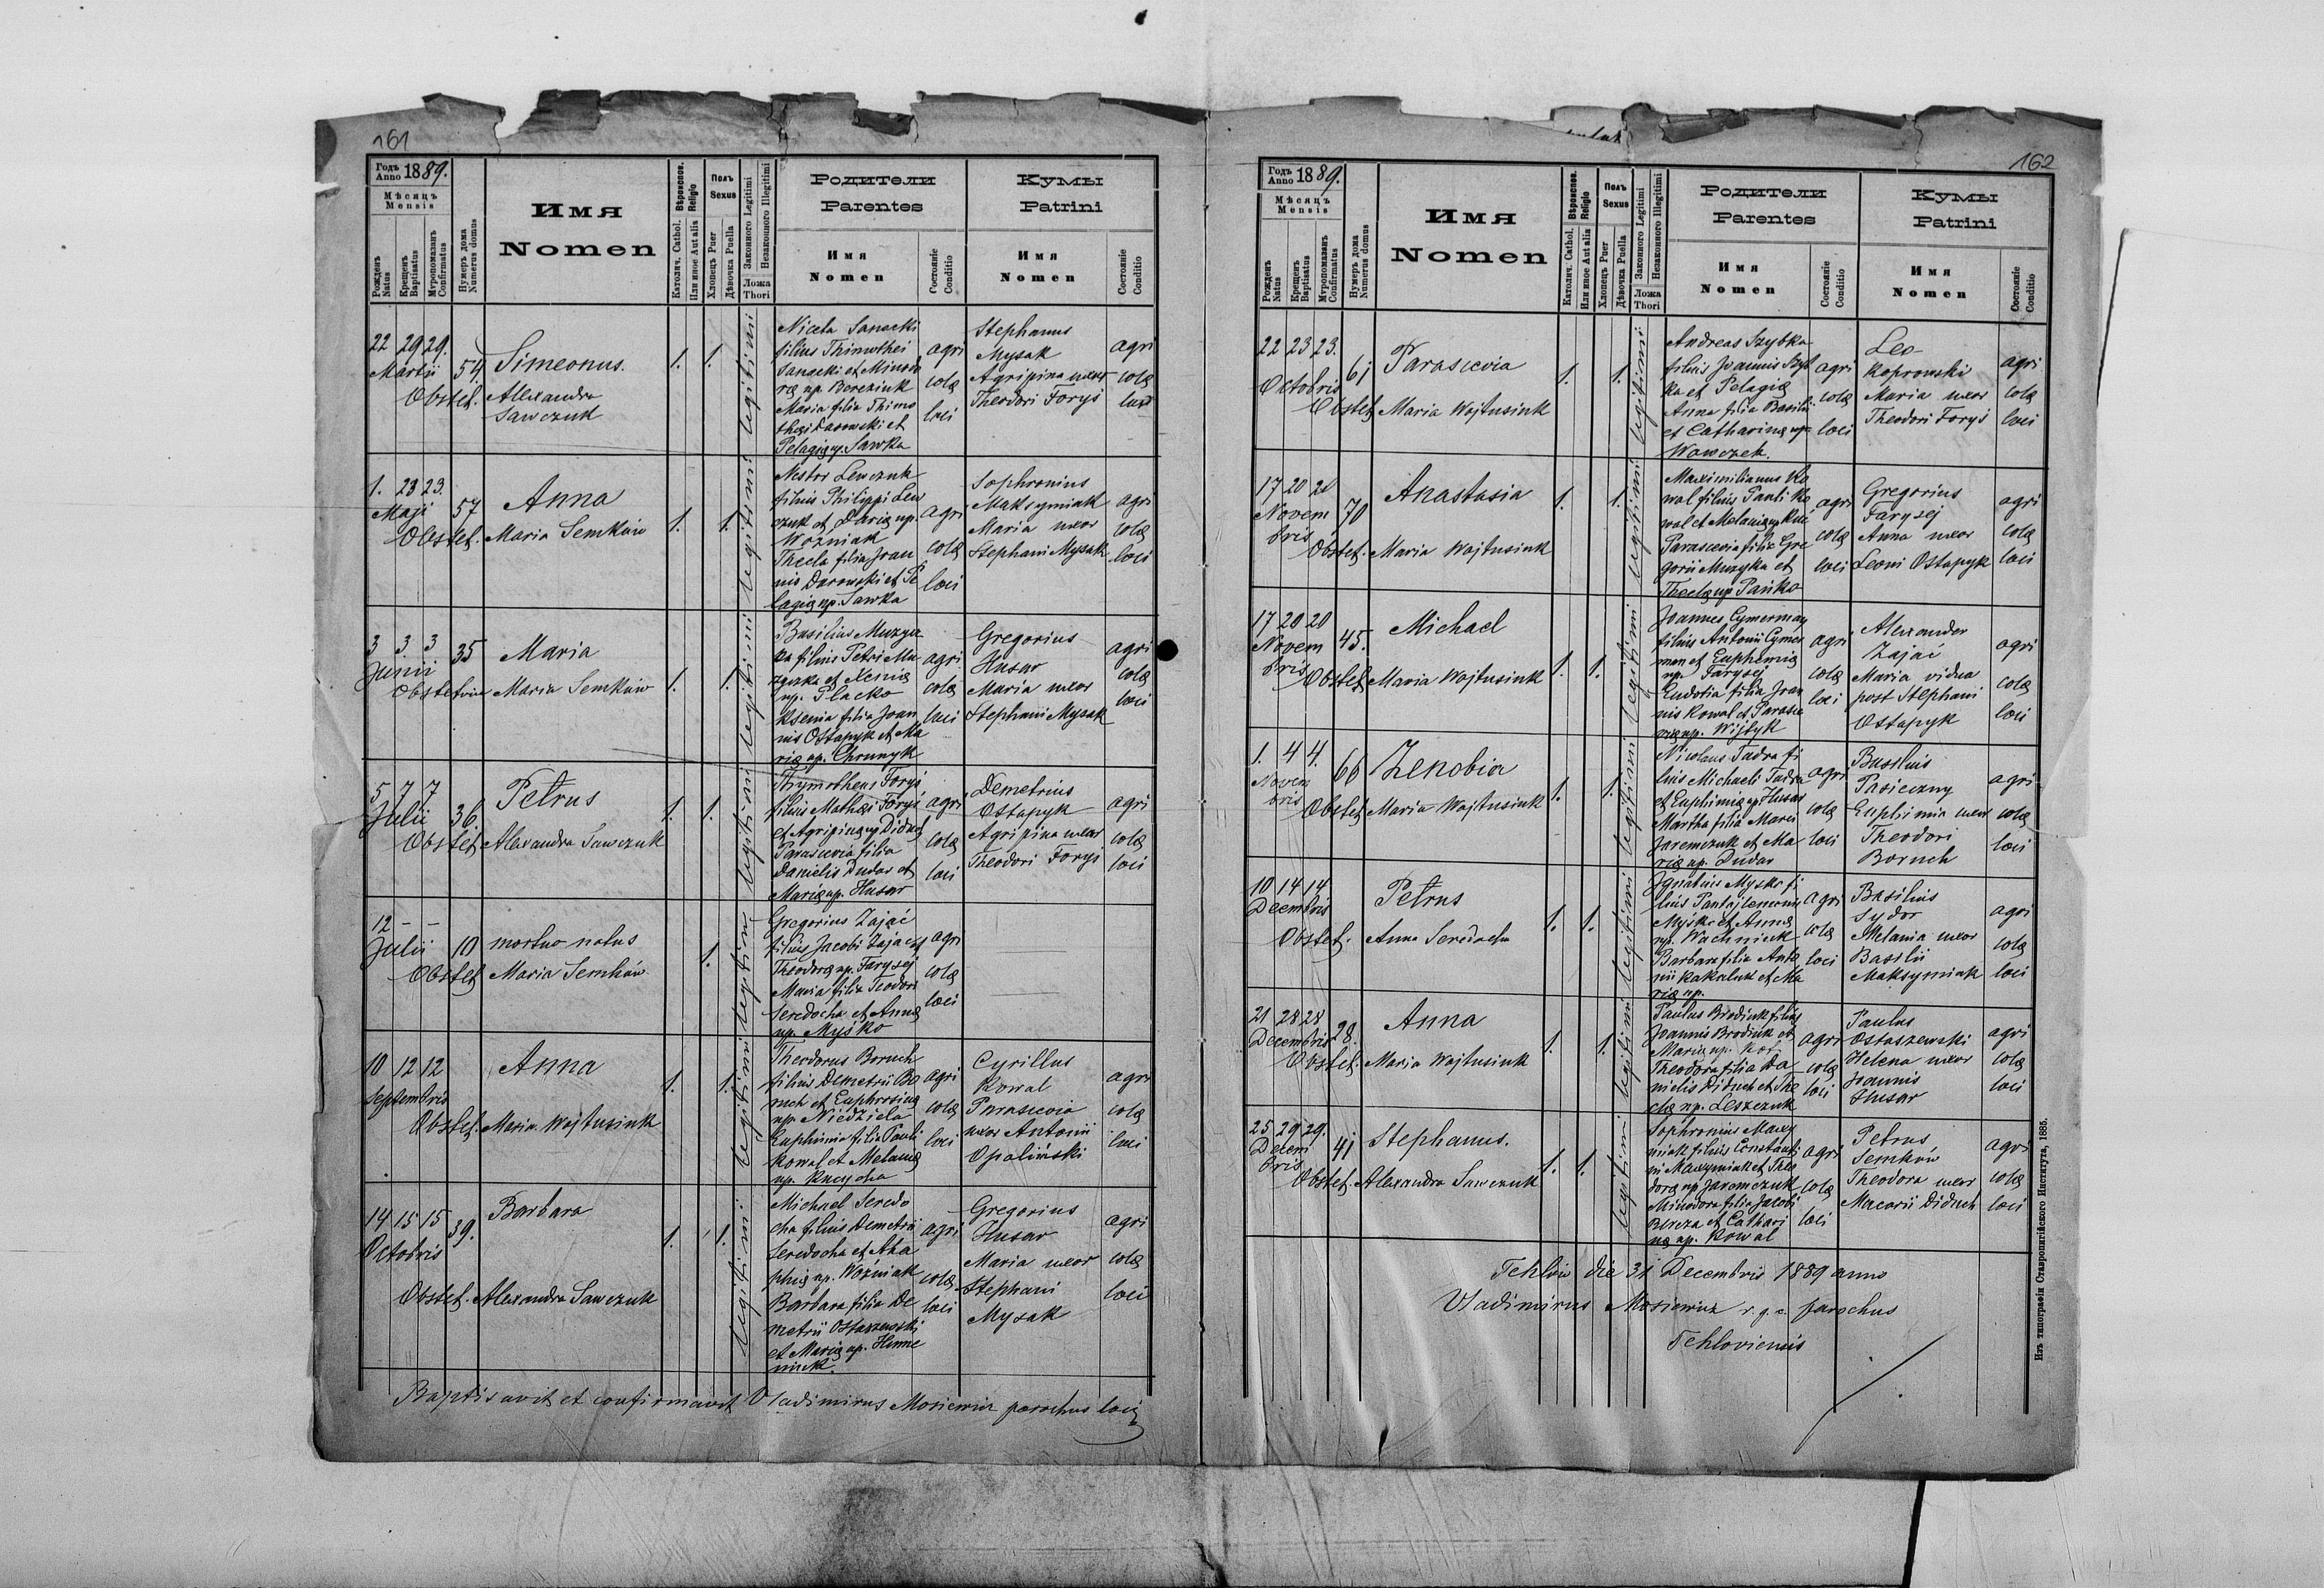 161
Годъ Anno 1889.
Мѣсяцъ Mensis
Рожденъ Natus
Крещенъ Baptisatus
Мѵропомазанъ Confirmatus
Нумеръ дома Numerus domus
Имя
Nomen
Вѣроиспов. Religio
Католич. Cathol.
Или иное Aut alia
Полъ Sexus
Хлопецъ Puer
Дѣвочка Puella
Законного Legitimi
Незаконного Illegitimi
Ложа Thori
Родители
Parentes
Имя
Nomen
Состояніе Conditio
Кумы
Patrini
Имя
Nomen
Состояніе Conditio
22 29 29.
Martii 54
Simeonus.
Obstet. Alexandra
Sawczuk
1. 1.
legitimi
Niceta Sanocki
filius Thimothei
Sanocki et Minodo
ræ np. Bereziuk
Maria filia Thimo
thei Darowski et
Pelagiæ np. Sawka
agri
colæ
loci
Stephanus
Mysak
Agripina uxor
Theodori Forys
agri
colæ
loci
1. 23 23.
Maji 57
Anna
Obstet. Maria Semków
1. 1.
legitimi
Nestor Lewczuk
filius Philippi Lew
czuk et Dariæ np.
Woźniak
Thecla filia Joan
nis Darowski et Pe
lagiæ np. Sawka
agri
colæ
loci
Sophronius
Maksymiak
Maria uxor
Stephani Mysak
agri
colæ
loci
3 3 3
Junii 35
Maria
Obstetrix Maria Semków
1. 1.
legitimi
Basilius Muzycz
ka filius Petri Mu
zyczka et Xeniæ
np. Placko
Ksenia filia Joan
nis Ostapyk et Ma
riæ np. Chrunyk
agri
colæ
loci
Gregorius
Husar
Maria uxor
Stephani Mysak
agri
colæ
loci
5 7 7
Julii 36.
Petrus
Obstet. Alexandra Sawczuk
1. 1.
legitimi
Thymotheus Forys
filius Mathei Forys
et Agripinæ np. Diduch
Parascevia filia
Danielis Dudar et
Mariæ np. Husar
agri
colæ
loci
Demetrius
Ostapyk
Agripina uxor
Theodori Forys
agri
colæ
loci
12 – –
Julii 10
mortuo natus
Obstet. Maria Semków
1.
legitimi
Gregorius Zając
filius Jacobi Zając et
Theodoræ np. Farysej
Maria filia Teodori
Seredocha et Annæ
np. Myśko
agri
colæ
loci
10 12 12
Septembris
Anna
Obstet. Maria Wojtusiuk
1. 1.
legitimi
Theodorus Boruch
filius Demetrii Bo
ruch et Euphrosinæ
np. Niedziela
Euphimia filia Pauli
Kowal et Melaniæ
agri
colæ
loci
Cyrillus
Kowal
Parascevia
uxor Antonii
Opaliński
agri
colæ
loci
14 15 15
Octobris 39.
Barbara
Obstet. Alexandra Sawczuk
1. 1.
legitimi
Michael Seredo
cha filius Demetrii
Seredocha et Aha
phiæ np. Woźniak
Barbara filia De
metrii Ostaszewski
et Mariæ np. Hume
niuk.
agri
colæ
loci
Gregorius
Husar
Maria uxor
Stephani
Mysak
agri
colæ
loci
Baptisavit et confirmavit Vladimirus Mosiewicz parochus loci
162
Годъ Anno 1889.
Мѣсяцъ Mensis
Рожденъ Natus
Крещенъ Baptisatus
Мѵропомазанъ Confirmatus
Нумеръ дома Numerus domus
Имя
Nomen
Вѣроиспов. Religio
Католич. Cathol.
Или иное Aut alia
Полъ Sexus
Хлопецъ Puer
Дѣвочка Puella
Законного Legitimi
Незаконного Illegitimi
Ложа Thori
Родители
Parentes
Имя
Nomen
Состояніе Conditio
Кумы
Patrini
Имя
Nomen
Состояніе Conditio
22 23 23.
Octobris 61
Parascevia
Obstet. Maria Wojtusiuk
1. 1.
legitimi
Andreas Szybka
filius Joannis Szyb
ka et Pelagiæ
Anna filia Basilii
et Catharinæ np.
Wowczek.
agri
colæ
loci
Leo
Koprowski
Maria uxor
Theodori Forys
agri
colæ
loci
17 20 20
Novem
bris 70
Anastasia
Obstet. Maria Wojtusiuk
1. 1.
legitimi
Maximilianus Ko
wal filius Pauli Ko
wal et Melaniæ np.
Parascevia filia Gre
gorii Muzyka et
Theclæ np. Pańko
agri
colæ
loci
Gregorius
Farysej
Anna uxor
Leoni Ostapyk
agri
colæ
loci
17 20 20
Novem
bris 45.
Michael
Obstet. Maria Wojtusiuk
1. 1.
legitimi
Joannes Cymerman
filius Antonii Cymer
man et Euphemiæ
np. Farysej
Eudotia filia Joan
nis Kowal et Parasce
viæ np. Wijtyk
agri
colæ
loci
Alexander
Zając
Maria vidua
post Stephani
Ostapyk
agri
colæ
loci
1. 4 4.
Novem
bris 66
Zenobia
Obstet. Maria Wojtusiuk
1. 1.
legitimi
Nicolaus Tadra fi
lius Michaeli Tadra
et Euphimiæ np. Husar
Martha filia Marci
Jaremczuk et Ma
riæ np. Dudar
agri
colæ
loci
Basilius
Pasieczny
Euphimia uxor
Theodori
Boruch
agri
colæ
loci
10 14 14
Decembris
Petrus
Obstet. Anna Seredocha
1. 1.
legitimi
Ignatius Mysko fi
lius Pantalemonis
Myśko et Annæ
np. Wachniuk
Barbara filia Anto
nii Kakaluk et Ma
riæ np.
agri
colæ
loci
Basilius
Sydor
Melania uxor
Basilii
Maksymiak
agri
colæ
loci
21 28 28
Decembris 28.
Anna
Obstet. Maria Wojtusiuk
1. 1.
legitimi
Paulus Brodiuk filius
Joannis Brodiuk et
Mariæ np. Kot
Theodora filia Da
nielis Diduch et The
clæ np. Leszczuk
agri
colæ
loci
Paulus
Ostaszewski
Helena uxor
Joannis
Husar
agri
colæ
loci
25 29 29.
Decem
bris 41
Stephanus.
Obstet. Alexandra Sawczuk
1. 1.
legitimi
Sophronius Maxy
miak filius Constanti
ni Maxymiak et Theo
doræ np. Jaremczuk
Minodora filia Jacobi
Bereza et Cathari
næ np. Kowal
agri
colæ
loci
Petrus
Semków
Theodora uxor
Macarii Diduch
agri
colæ
loci
Tehlów die 31 Decembris 1889 anno
Vladimirus Mosiewicz r. g. c. parochus
Tehloviensis
Изъ типографіи Ставропигійского Института, 1885.